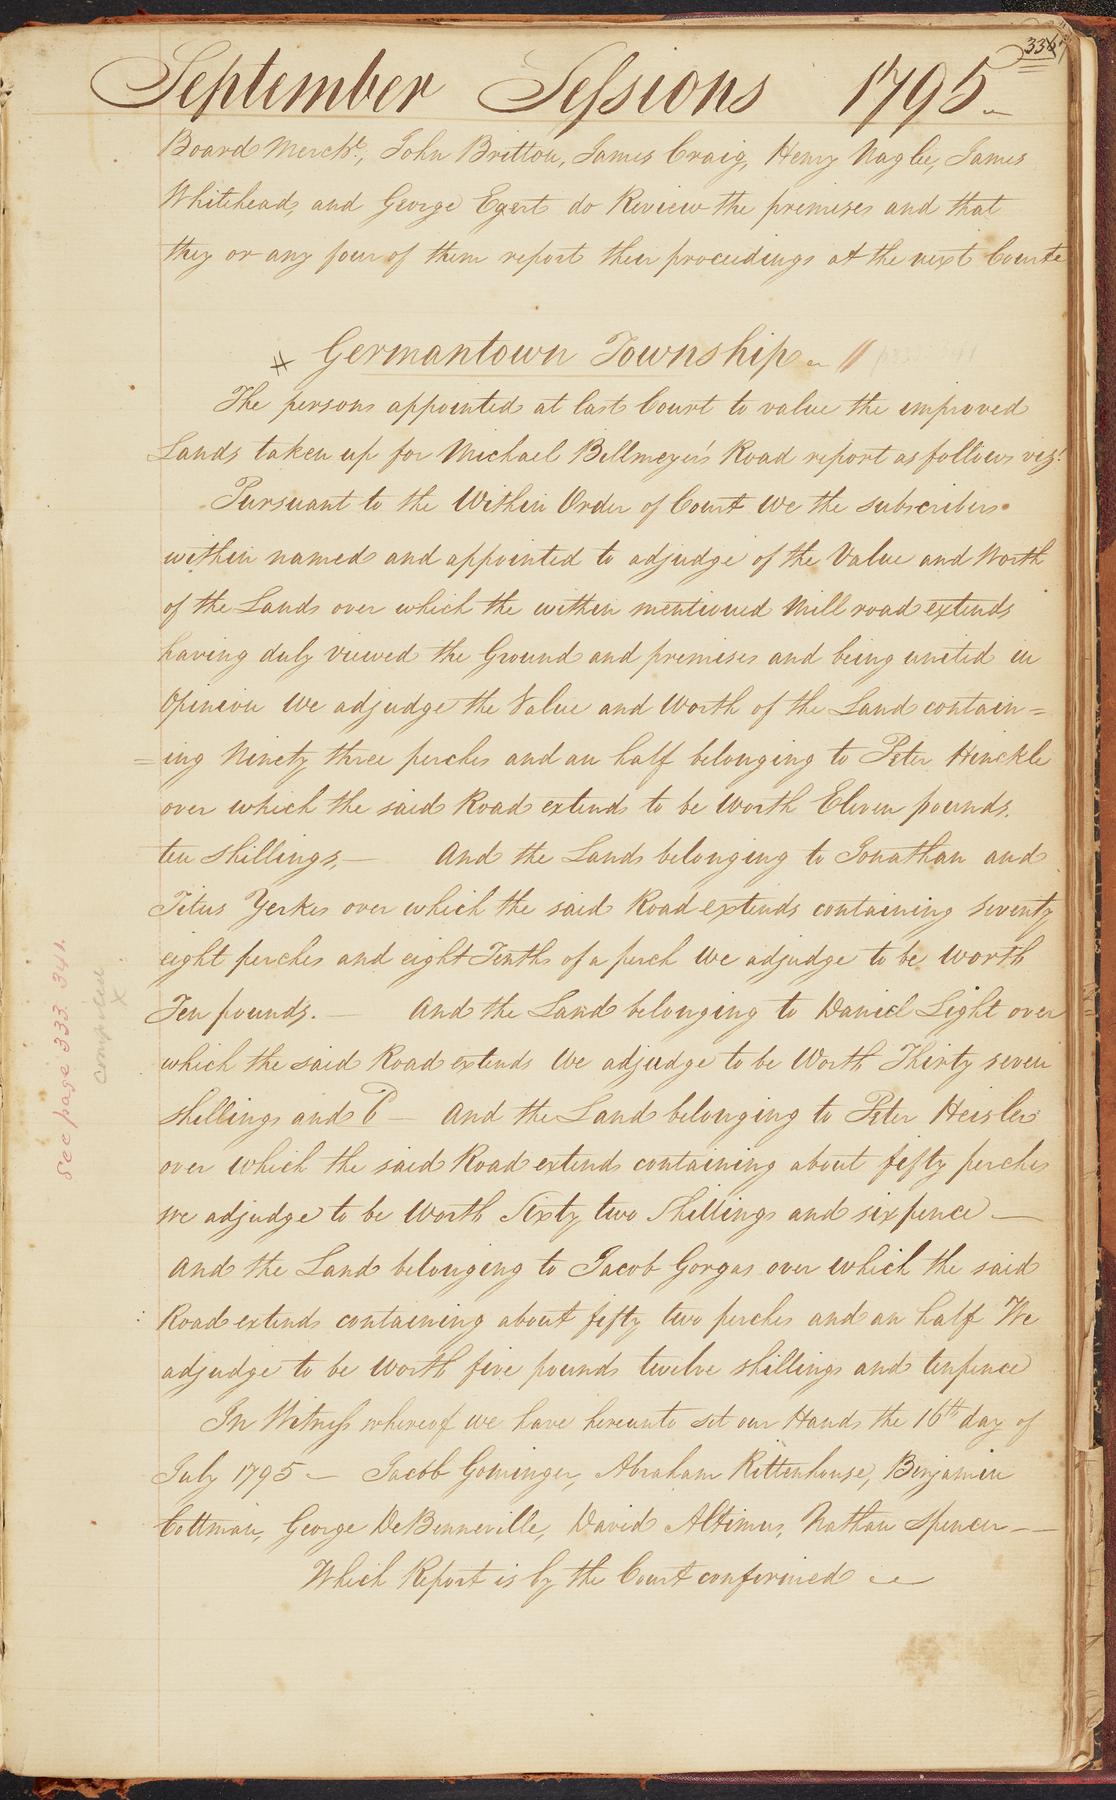 September Sessions 1795
Board Mercht, John Britton, James Craig, Henry Naglee, James
Whitehead, and George Egert do Review the premises and that
they or any four of them report their proceedings at the next Courte
Germantown Township
The persons appointed at last Court to value the improved
Lands taken up for Michael Billmeyer's Road report as follows vizt
Pursuant to the Within Order of Court We the subscribers
within named and appointed to adjudge of the Value and Worth
of the Lands over which the within mentioned Mill road extends
having duly viewed the Ground and premises and being united in
Opinion We adjudge the Value and Worth of the Land contain=
=ing Ninety three perches and an half belonging to Peter Hinckle
over which the said Road extends to be Worth Eleven pounds.
ten shillings,— And the Lands belonging to Jonathan and
Titus Yerkes over which the said Road extends containing Seventy
eight perches and eight Tenths of a perch We adjudge to be Worth
Ten pounds. — And the Land belonging to Daniel Light over
which the said Road extends We adjudge to be Worth Thirty seven
shillings and 6 — And the Land belonging to Peter Heisler
over which the said Road extends containing about fifty perches
we adjudge to be Worth Sixty two Shillings and sixpence —
And the Land belonging to Jacob Gorgas over which the said
Road extends containing about fifty two perches and an half We
adjudge to be Worth five pounds twelve shillings and tenpence
In Witness whereof we have hereunto set our Hands the 16th day of
July 1795 — Jacob Gominger, Abraham Rittenhouse, Benjamin
Cottman, George DeBenneville, David Altimus, Nathan Spencer —
Which Report is by the Court confirmed
See page 333. 341.